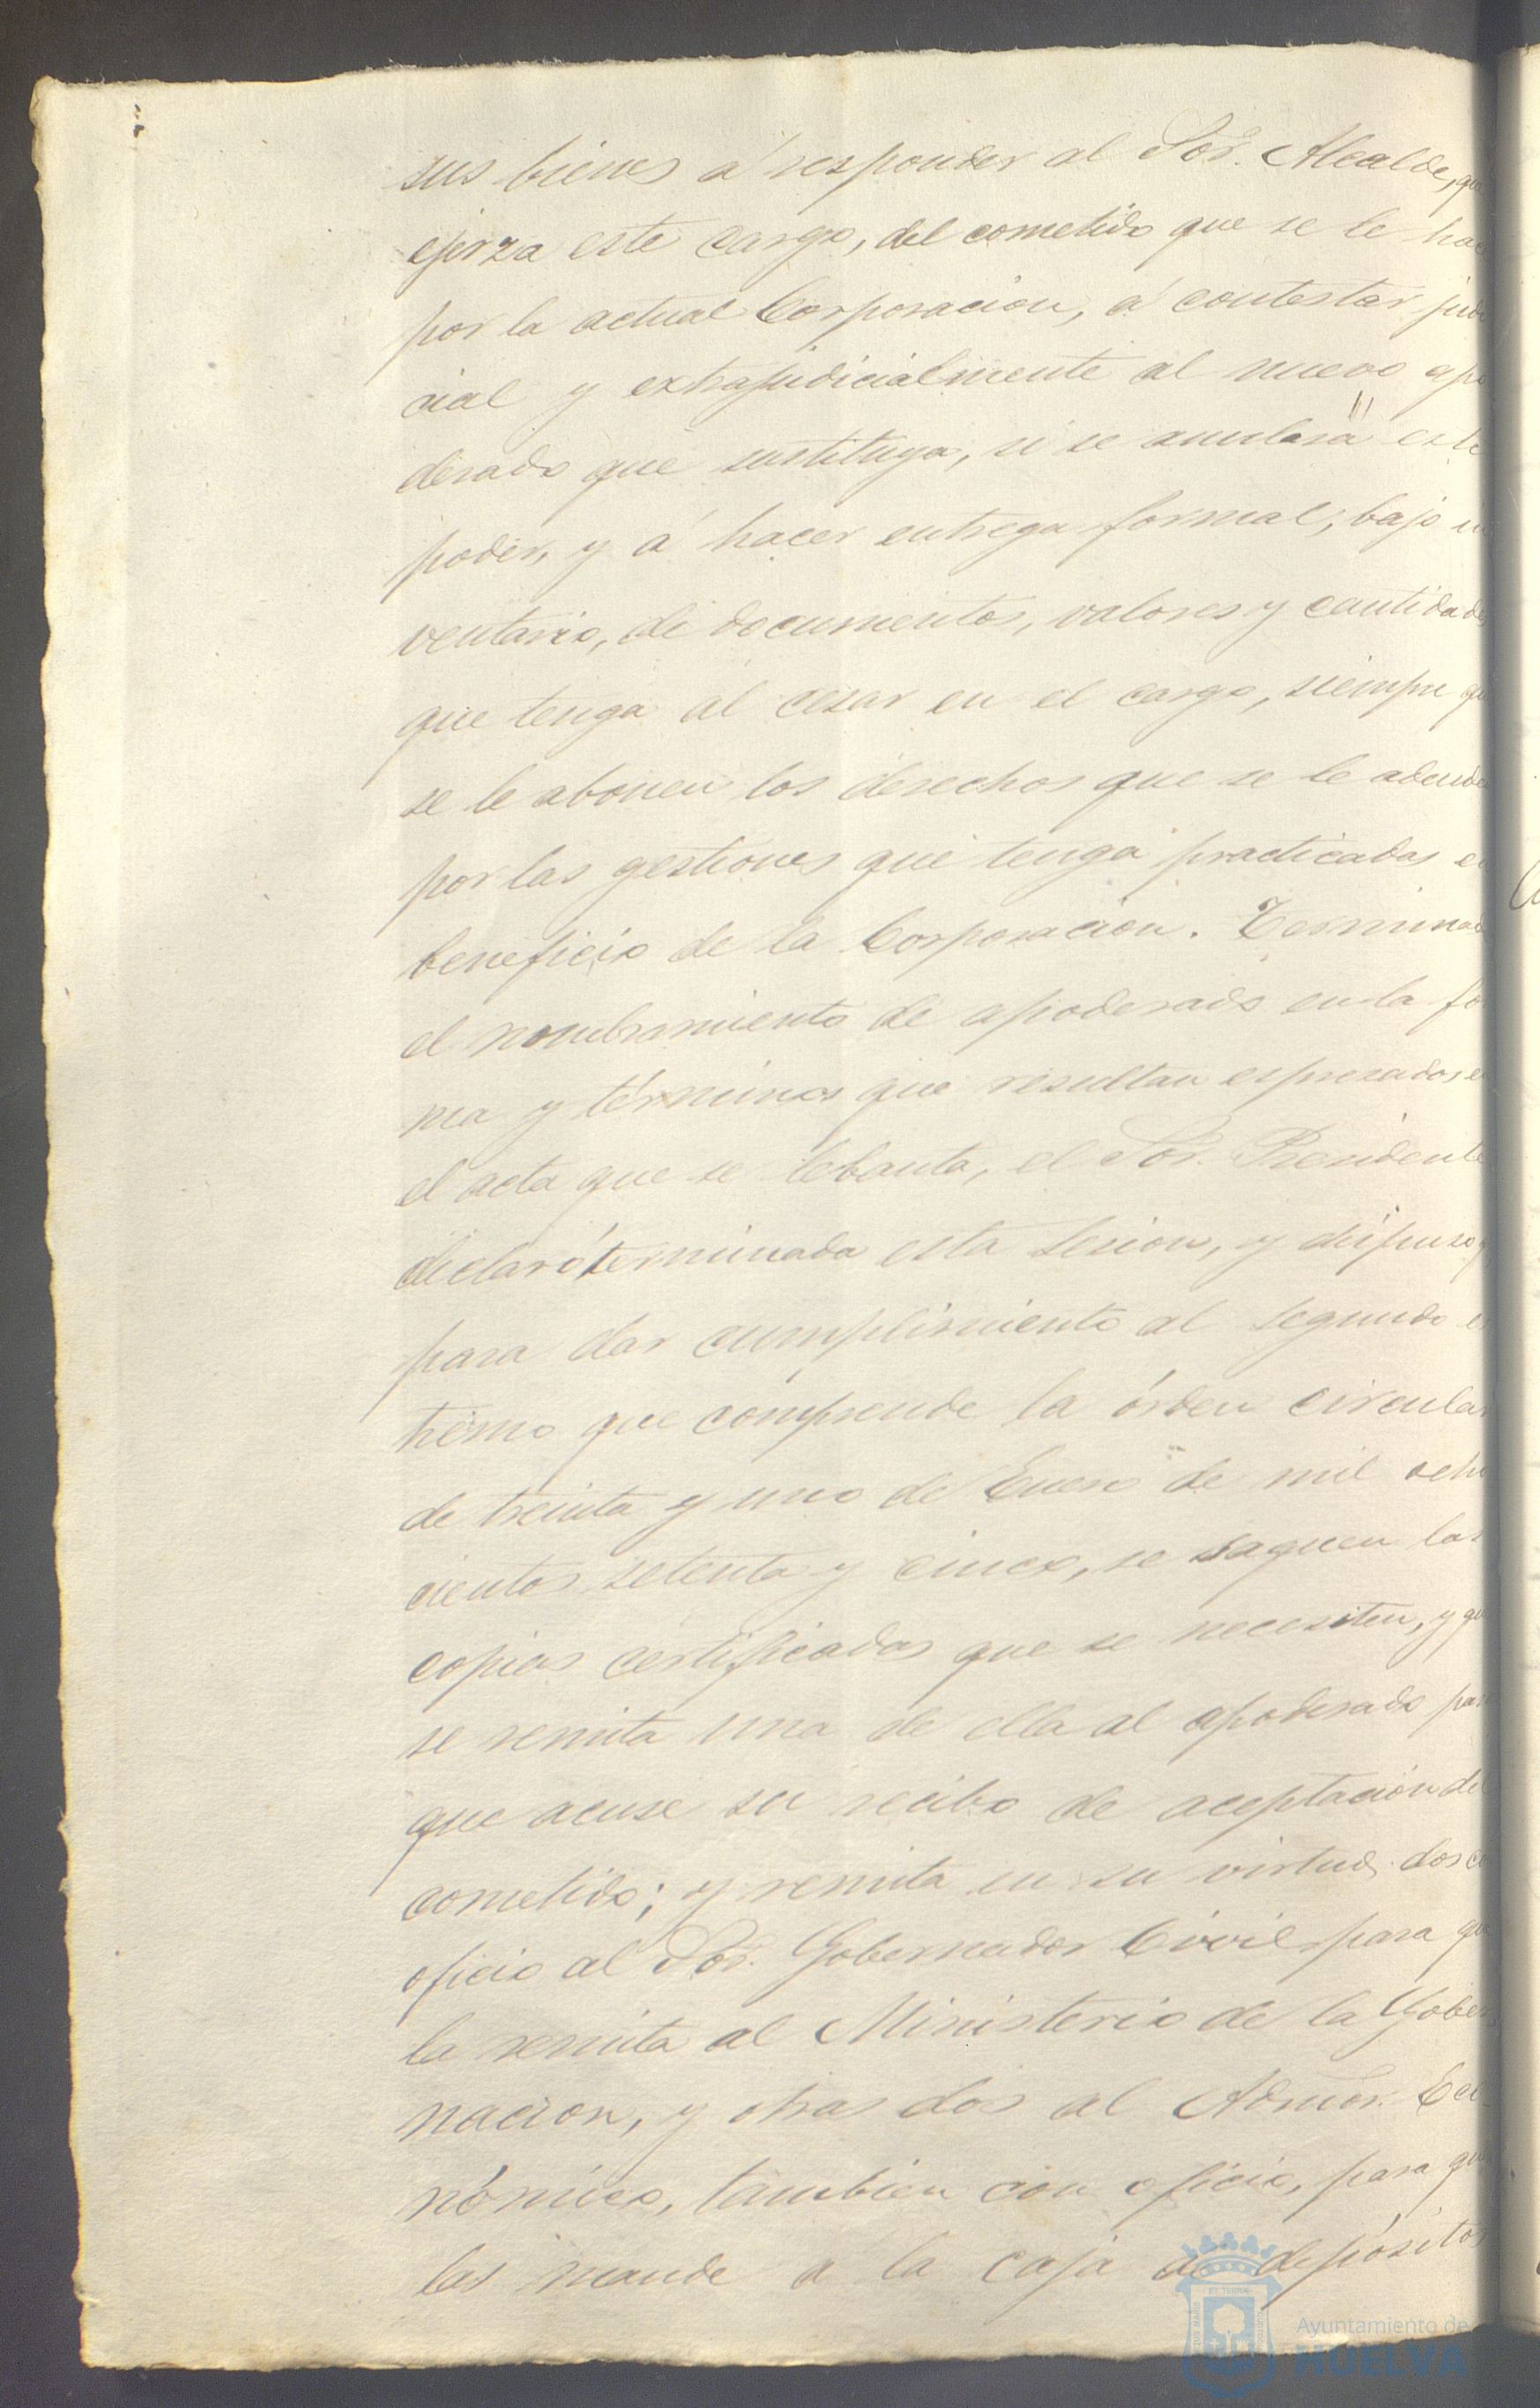 sus bienes á responder al Sor. Alcalde, que
ejerza este cargo, del cometido que se le hace
por la actual Corporacion, á contestar judi
cial y extrajudicialmente al nuevo apo
derado que sustituya, si se anulara este
poder, y á hacer entrega formal, bajo in
ventario, de documentos, valores y cantidades
que tenga al cesar en el cargo, siempre que
se le abonen los derechos que se le adeuden
por las gestiones que tenga practicadas en
beneficio de la Corporacion. Terminado
el nombramiento de apoderado en la for
ma y términos que resultan espresados en
el acta que se lebanta, el Sor. Presidente
declaró terminada esta sesion, y dispuso q
para dar cumplimiento al segundo es
tremo que comprende la órden circular
de treinta y uno de Enero de mil ocho
cientos setenta y cinco, se saquen las
copias certificadas que se necesiten, y que
se remita una de ella al apoderado para
que acuse su recibo de aceptación del
cometido; y remita en su virtud dos co
oficio al Sor. Gobernador Civil para que
la remita al Ministerio de la Gober
nacion, y otras dos al Admor. Eco
nómico, tambien con oficio, para que
las mande a la caja de depósitos
Ayuntamiento de
HUELVA